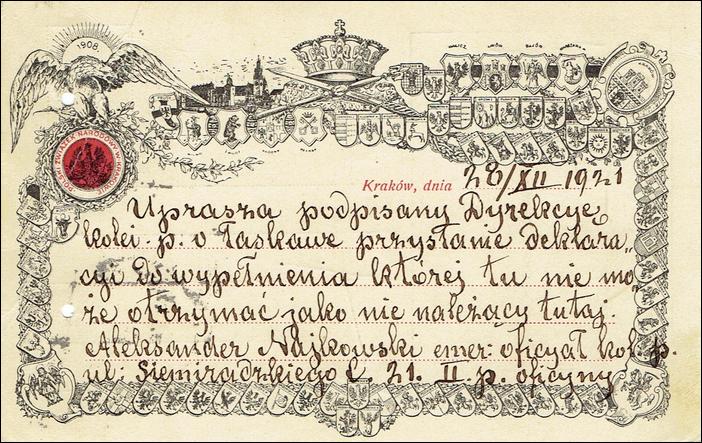 1908.
HALICZ LWÓW
POLSKI ZWIĄZEK NARODOWY W KRAKOWIE
Kraków, dnia 28/XII 1921
Uprasza podpisany Dyrekcyę
kolei. p. o łaskawe przysłanie deklara„
cyi do wypełnienia której tu nie mo„
że otrzymać jako nie należący tutaj.
Aleksander Najkowski emer: oficyał kol. p.
ul: Siemiradzkiego L. 21. II. p. oficyny